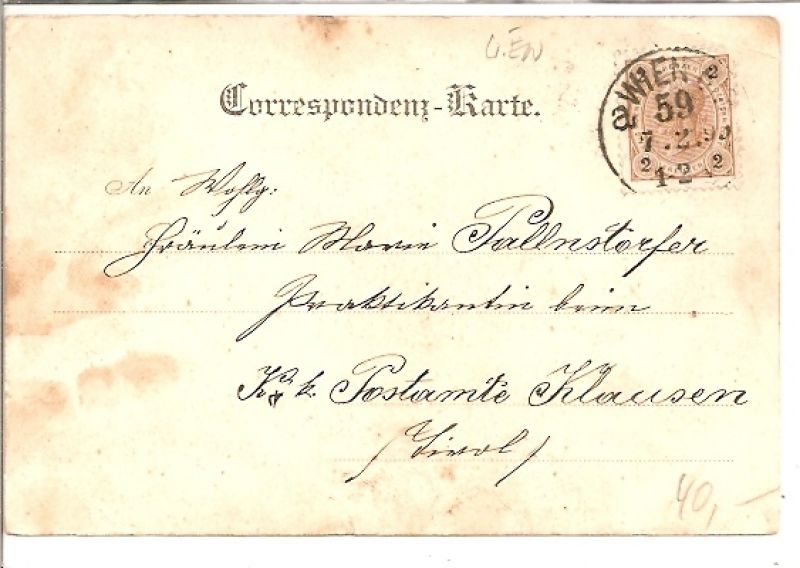 WIEN
Correspondenz-Karte.
WIEN
59
7.2.
2 2 2
An Wohlg:
Fräulein Marie Pallnstorfer
Praktikantin beim
K. k. Postamte Klausen
/Tirol/
40,-